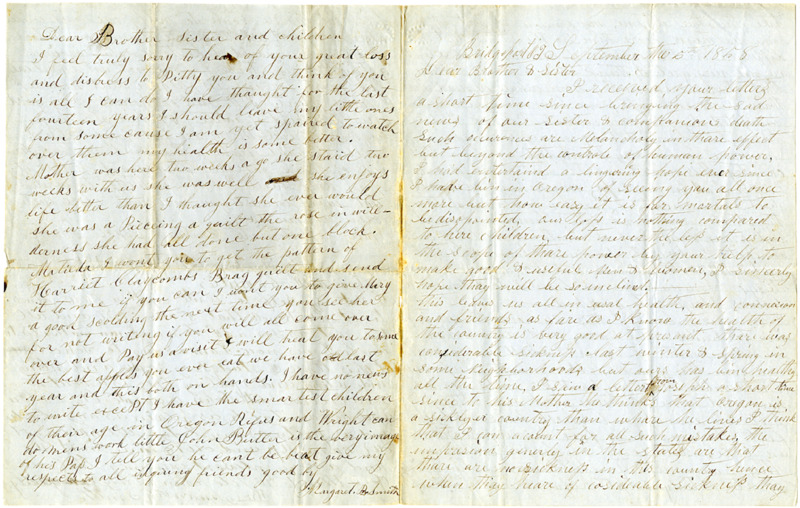 Dear Brother Sister and children
I feel truly sorry to hear of your great loss
and distress to Pitty you and think of you
is all I can do I have thought for the last
fourteen years I should leave my little ones
from some cause I am yet spaired to watch
over them my health is some better.
Mother was here two weeks a go she staid two
weeks with us she was well she enjoys
life better than I thaught she ever would
she was a Pieceing a quilt the rose in will-
derness she had all done but one block.
I wont you to get the pattern of
Harriet Claycombs Brag quilt and send
it to me if you can I wont you to give Mary
a good scolding the next time you see her
for not writing if you will all come over
over and Pay us a visit I will treat you to some
the best apples you ever eat we have old last
year and this both on hands. I have no news
to write except I have the smartest children
of their age in Oregon and Wright can
do mens work little John is the very image
of his Pap I tell you he cant be beat give my
respects to all inquiring friends good by
Margaret B Smith
September the 5th 185
Dear Brother & Sister
I received your letter
a short time since bringing the sad
news of our sister & companions death
such are Melancholy in thare effect
but beyond the controle of human power,
I had entertaind a lingering hope ever since
I have bin in Oregon of Seeing you all once
more but how easy it is for mortals to
be disopointed, our loss is nothing compared
to here children, but never the less it is in
the scope of thare power by your help, to
make good & useful men & women, I sincerly
hope thay will be so inclined.
this leavs us all in usal health, and conexcion
and friends as fare as I know the health of
the country is very good at present, thare was
considerable sickness last winter & spring in
some neighborhoods but ours was bin healthy
all the time, I saw a letter from a short time
since to his Mother he thinks that Oregan is
a sicklyer country than whare he lives I think
that I can account for all such mistakes, the
impression generaly in the states are that
thare are no sickness in this country hence
when thay heare of cosiderable sickness thay